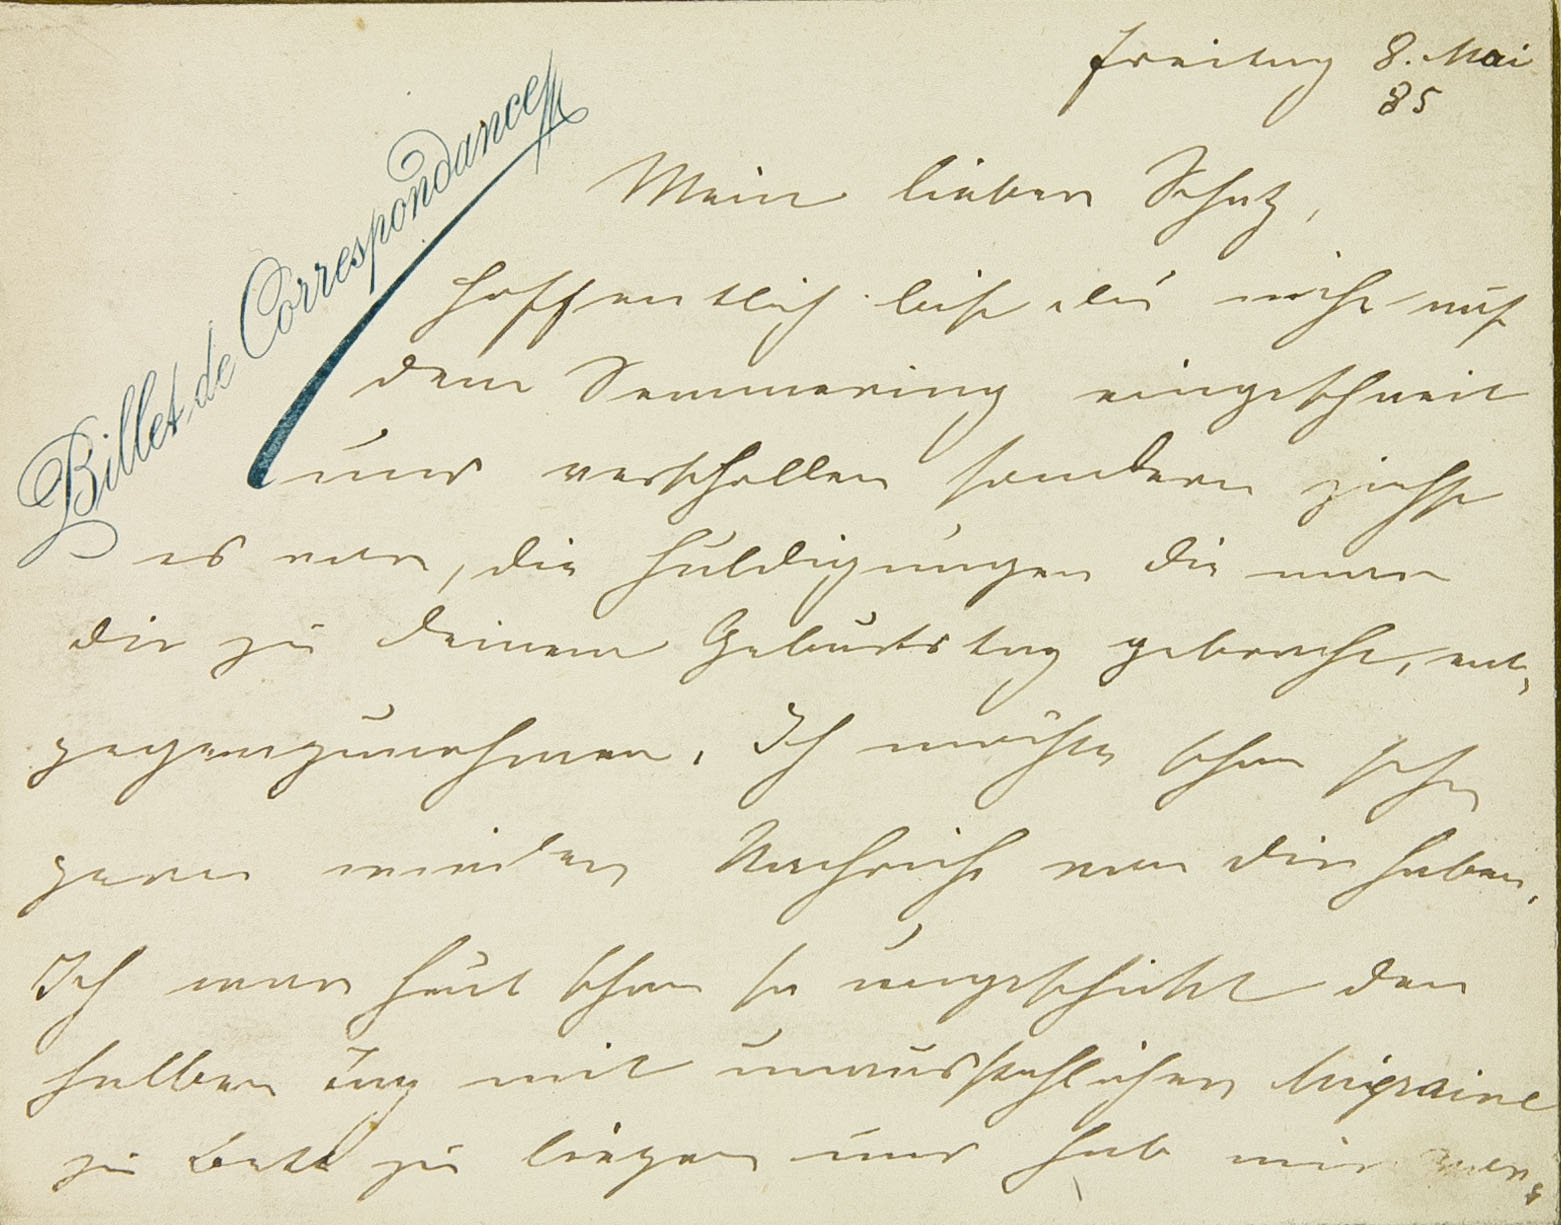 Freitag 8. Mai
85
Billet de Correspondance
Mein lieber Schatz,
hoffentlich bist du nicht auf
dem Semmering eingeschneit
und verschollen sondern ziehst
es vor, die Huldigungen die man
dir zu deinem Geburtstag gebracht, ent-
gegenzunehmen. Ich möchte schon sehr
gern wieder Nachricht von dir haben.
Ich war heut schon so ungeschickt den
halben Tag mit unausstehlicher Migraine
zu Bett zu liegen und hab mir